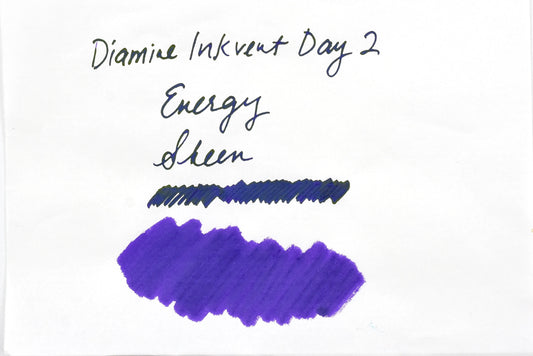 Diamine Inkvent Day 2
Energy
Sheen